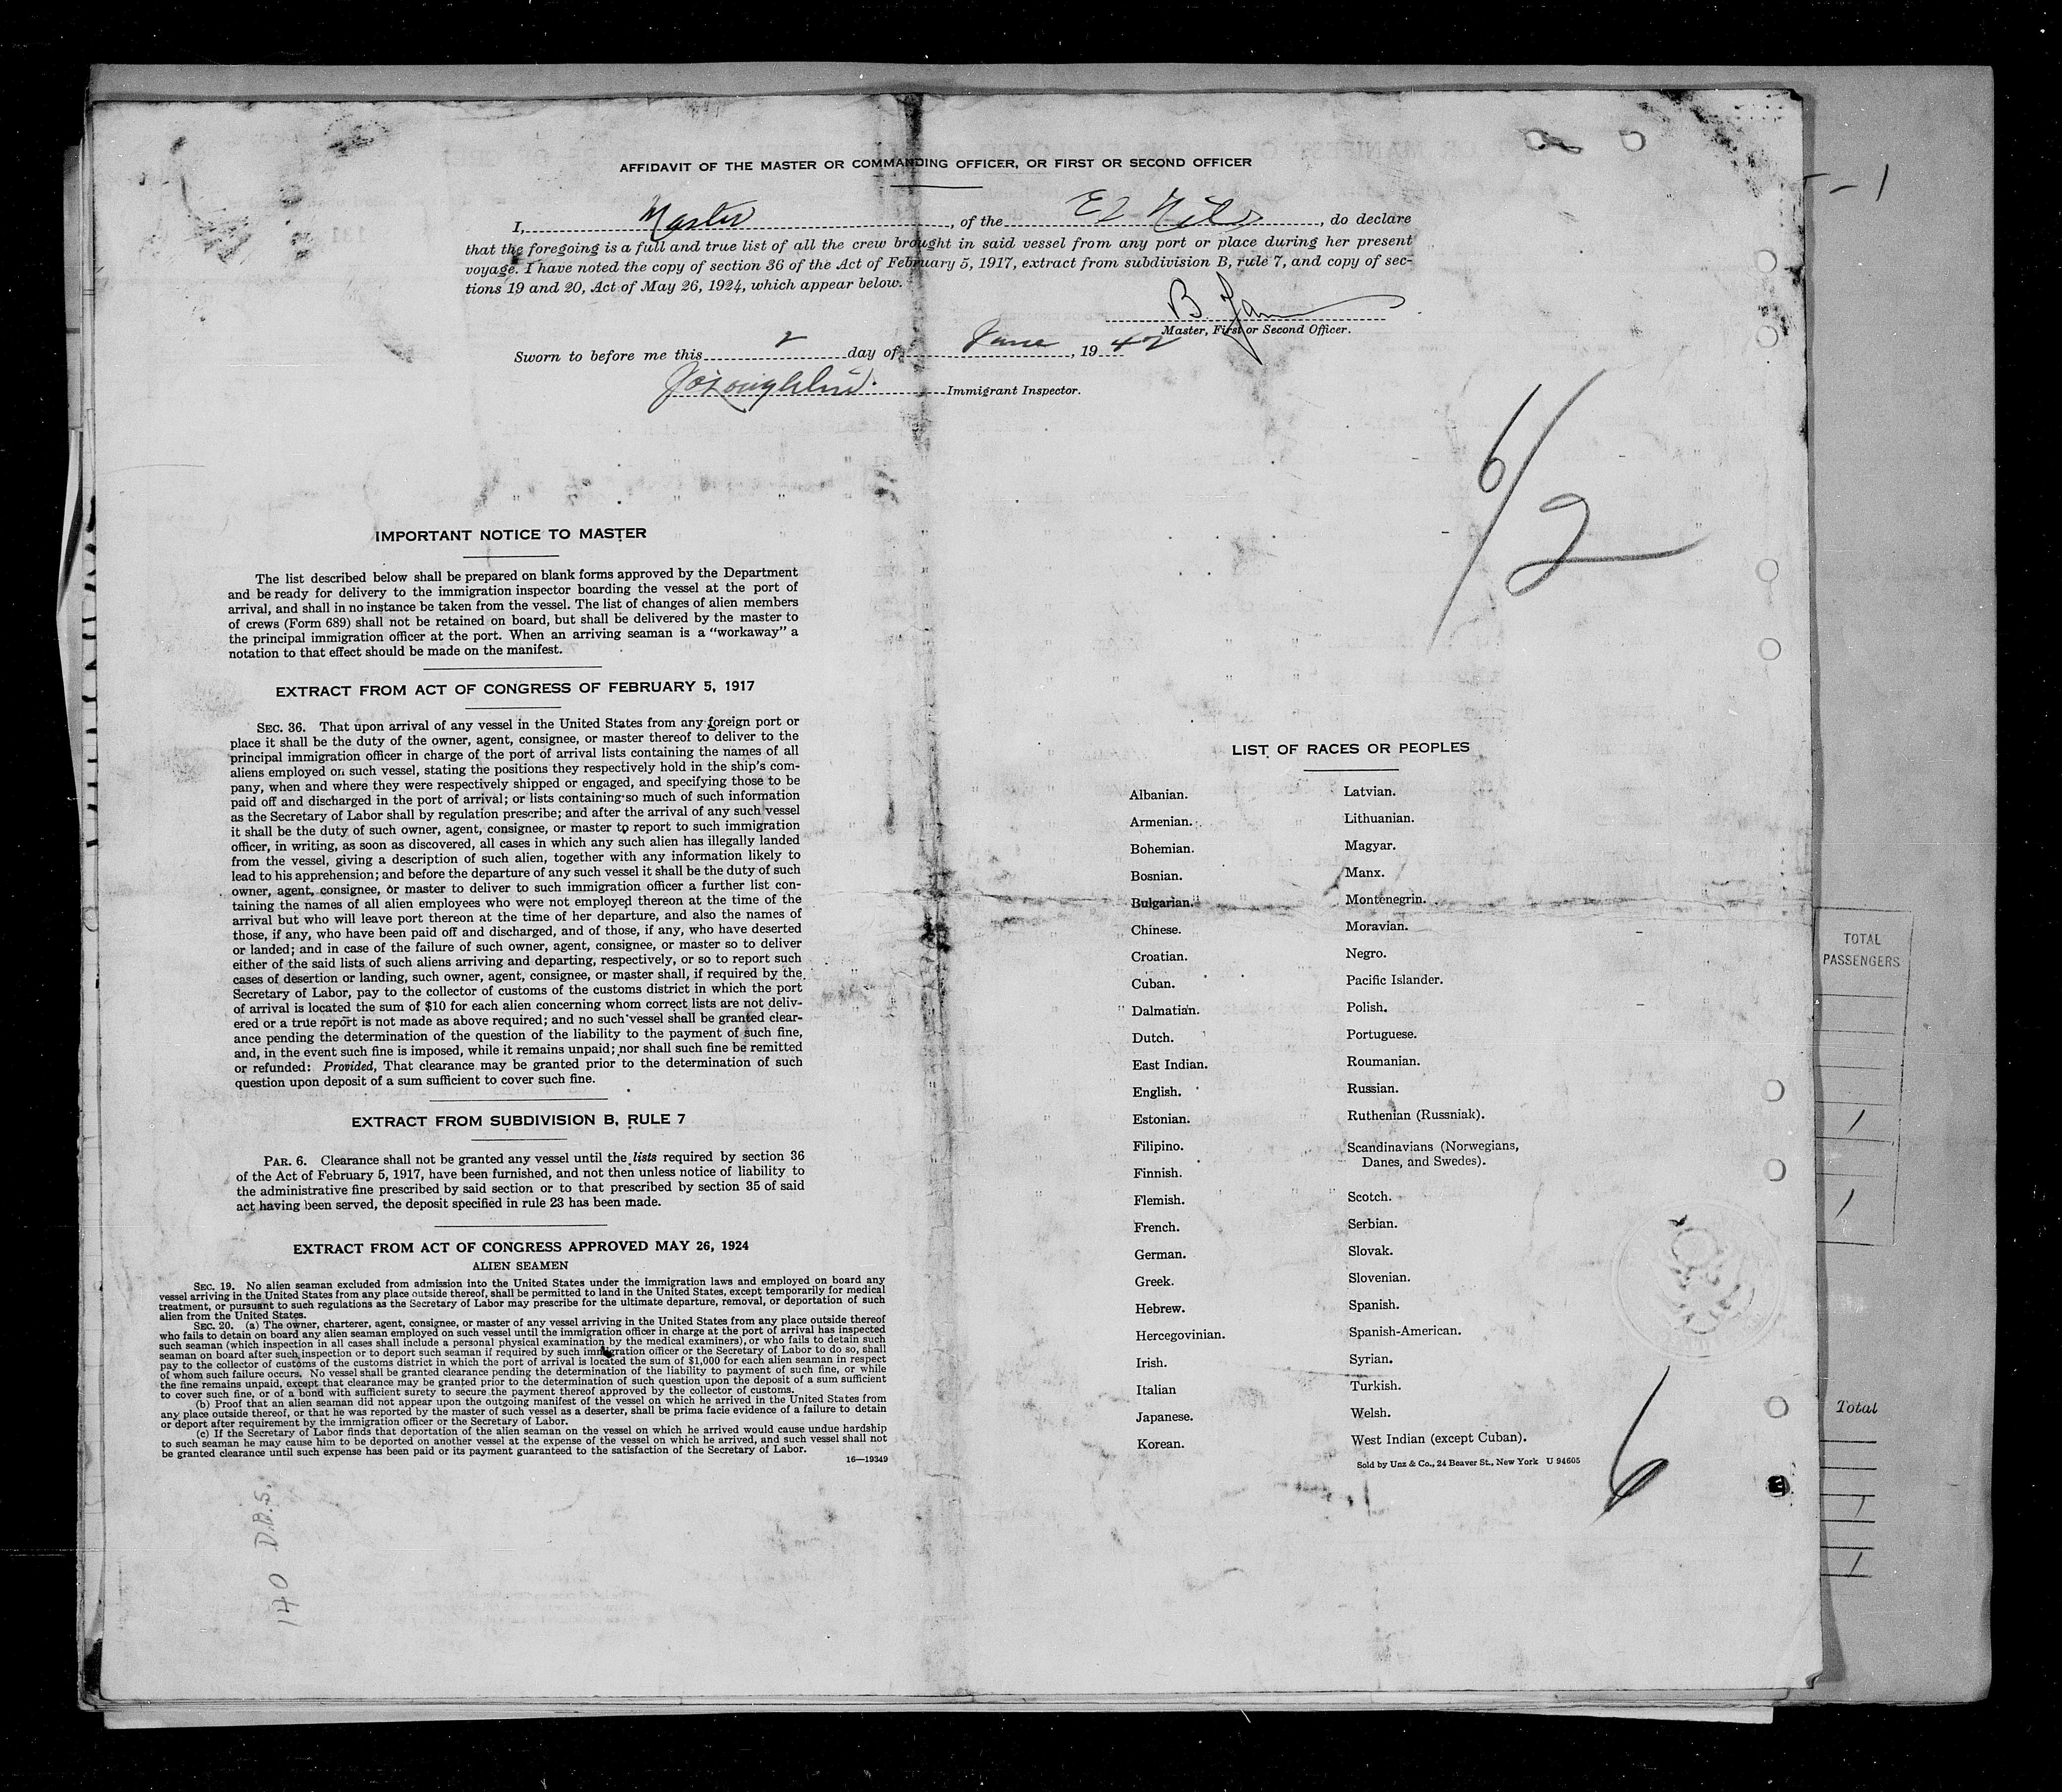 AFFIDAVIT OF THE MASTER OR COMMANDING OFFICER, OR FIRST OR SECOND OFFICER
I, Master, of the El Nilo, do declare
that the foregoing is a full and true list of all the crew brought in said vessel from any port or place during her present
voyage. I have noted the copy of section 36 of the Act of February 5, 1917, extract from subdivision B, rule 7, and copy of sec-
tions 19 and 20, Act of May 26, 1924, which appear below.
B.
Master, First or Second Officer.
Sworn to before me this 2 day of June, 1942
Immigrant Inspector.
6/2
IMPORTANT NOTICE TO MASTER
The list described below shall be prepared on blank forms approved by the Department
and be ready for delivery to the immigration inspector boarding the vessel at the port of
arrival, and shall in no instance be taken from the vessel. The list of changes of alien members
of crews (Form 689) shall not be retained on board, but shall be delivered by the master to
the principal immigration officer at the port. When an arriving seaman is a "workaway" a
notation to that effect should be made on the manifest.
EXTRACT FROM ACT OF CONGRESS OF FEBRUARY 5, 1917
SEC. 36. That upon arrival of any vessel in the United States from any foreign port or
place it shall be the duty of the owner, agent, consignee, or master thereof to deliver to the
principal immigration officer in charge of the port of arrival lists containing the names of all
aliens employed on such vessel, stating the positions they respectively hold in the ship's com-
pany, when and where they were respectively shipped or engaged, and specifying those to be
paid off and discharged in the port of arrival; or lists containing so much of such information
as the Secretary of Labor shall by regulation prescribe; and after the arrival of any such vessel
it shall be the duty of such owner, agent, consignee, or master to report to such immigration
officer, in writing, as soon as discovered, all cases in which any such alien has illegally landed
from the vessel, giving a description of such alien, together with any information likely to
lead to his apprehension; and before the departure of any such vessel it shall be the duty of such
owner, agent, consignee, or master to deliver to such immigration officer a further list con-
taining the names of all alien employees who were not employed thereon at the time of the
arrival but who will leave port thereon at the time of her departure, and also the names of
those, if any, who have been paid off and discharged, and of those, if any, who have deserted
or landed; and in case of the failure of such owner, agent, consignee, or master so to deliver
either of the said lists of such aliens arriving and departing, respectively, or so to report such
cases of desertion or landing, such owner, agent, consignee, or master shall, if required by the
Secretary of Labor, pay to the collector of customs of the customs district in which the port
of arrival is located the sum of $10 for each alien concerning whom correct lists are not deliv-
ered or a true report is not made as above required; and no such vessel shall be granted clear-
ance pending the determination of the question of the liability to the payment of such fine,
and, in the event such fine is imposed, while it remains unpaid; nor shall such fine be remitted
or refunded: Provided, That clearance may be granted prior to the determination of such
question upon deposit of a sum sufficient to cover such fine.
EXTRACT FROM SUBDIVISION B, RULE 7
PAR. 6. Clearance shall not be granted any vessel until the lists required by section 36
of the Act of February 5, 1917, have been furnished, and not then unless notice of liability to
the administrative fine prescribed by said section or to that prescribed by section 35 of said
act having been served, the deposit specified in rule 23 has been made.
EXTRACT FROM ACT OF CONGRESS APPROVED MAY 26, 1924
ALIEN SEAMEN
SEC. 19. No alien seaman excluded from admission into the United States under the immigration laws and employed on board any
vessel arriving in the United States from any place outside thereof, shall be permitted to land in the United States, except temporarily for medical
treatment, or pursuant to such regulations as the Secretary of Labor may prescribe for the ultimate departure, removal, or deportation of such
alien from the United States.
SEC. 20. (a) The owner, charterer, agent, consignee, or master of any vessel arriving in the United States from any place outside thereof
who fails to detain on board any alien seaman employed on such vessel until the immigration officer in charge at the port of arrival has inspected
such seaman (which inspection in all cases shall include a personal physical examination by the medical examiners), or who fails to detain such
seaman on board after such inspection or to deport such seaman if required by such immigration officer or the Secretary of Labor to do so, shall
pay to the collector of customs of the customs district in which the port of arrival is located the sum of $1,000 for each alien seaman in respect
of whom such failure occurs. No vessel shall be granted clearance pending the determination of the liability to payment of such fine, or while
the fine remains unpaid, except that clearance may be granted prior to the determination of such question upon the deposit of a sum sufficient
to cover such fine, or of a bond with sufficient surety to secure the payment thereof approved by the collector of customs.
(b) Proof that an alien seaman did not appear upon the outgoing manifest of the vessel on which he arrived in the United States from
any place outside thereof, or that he was reported by the master of such vessel as a deserter, shall be prima facie evidence of a failure to detain
or deport after requirement by the immigration officer or the Secretary of Labor.
(c) If the Secretary of Labor finds that deportation of the alien seaman on the vessel on which he arrived would cause undue hardship
to such seaman he may cause him to be deported on another vessel at the expense of the vessel on which he arrived, and such vessel shall not
be granted clearance until such expense has been paid or its payment guaranteed to the satisfaction of the Secretary of Labor.
16—19349
140 D.B.S.
LIST OF RACES OR PEOPLES
Albanian.
Armenian.
Bohemian.
Bosnian.
Bulgarian.
Chinese.
Croatian.
Cuban.
Dalmatian.
Dutch.
East Indian.
English.
Estonian.
Filipino.
Finnish.
Flemish.
French.
German.
Greek.
Hebrew.
Hercegovinian.
Irish.
Italian
Japanese.
Korean.
Latvian.
Lithuanian.
Magyar.
Manx.
Montenegrin.
Moravian.
Negro.
Pacific Islander.
Polish.
Portuguese.
Roumanian.
Russian.
Ruthenian (Russniak).
Scandinavians (Norwegians,
Danes, and Swedes).
Scotch.
Serbian.
Slovak.
Slovenian.
Spanish.
Spanish-American.
Syrian.
Turkish.
Welsh.
West Indian (except Cuban).
Sold by Unz & Co., 24 Beaver St., New York U 94605
6
TOTAL
PASSENGERS
Total